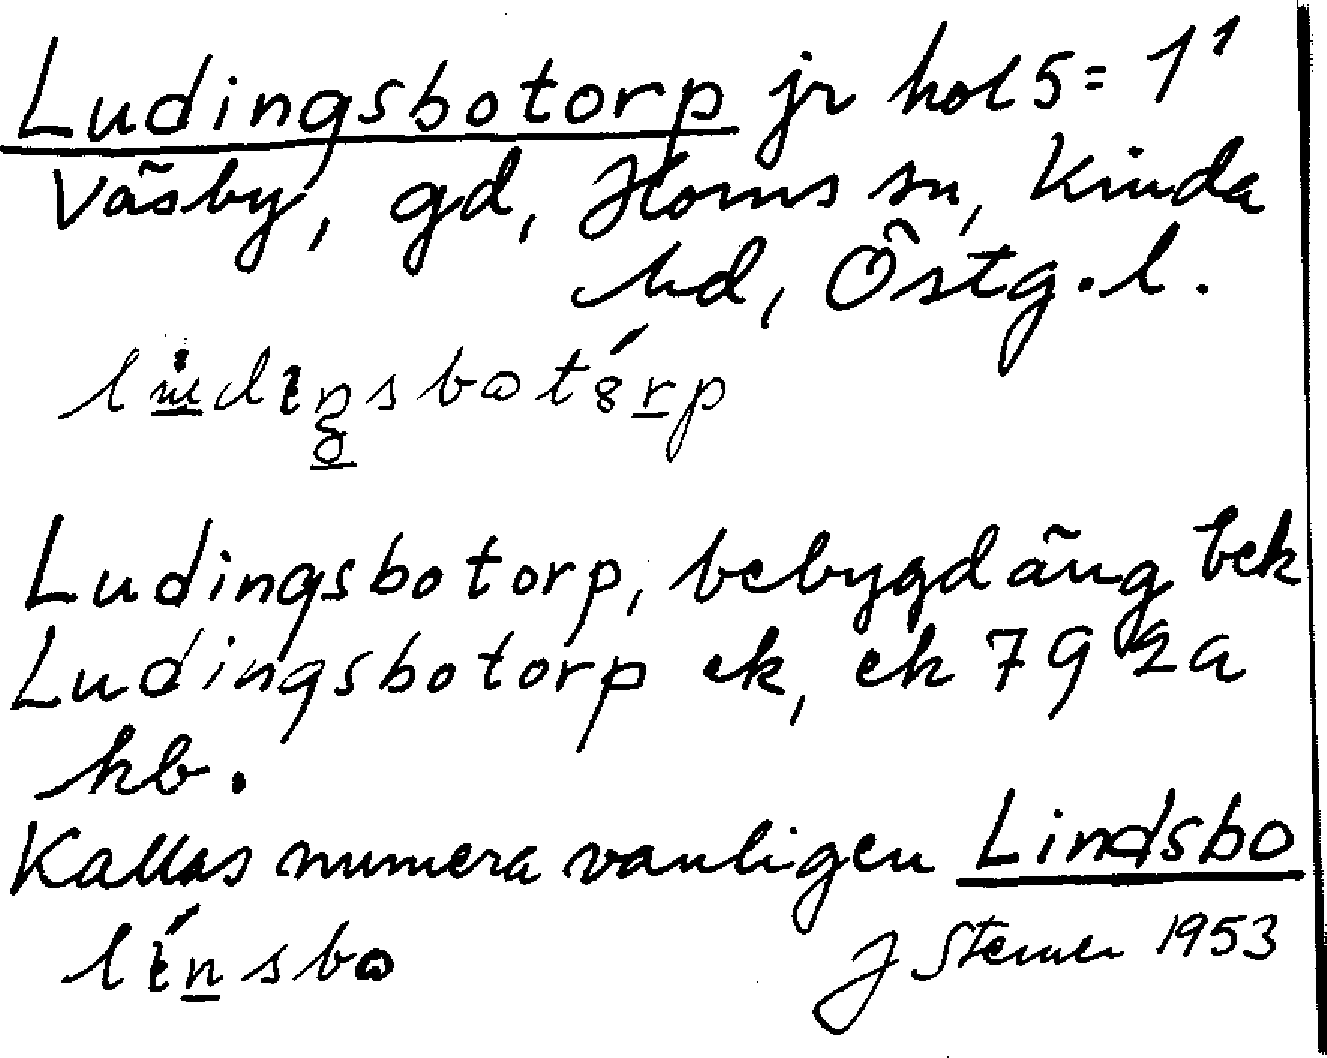 Ludingsbotorp jr hol 5 = 1¹
Väsby, gd, Horns sn, Kinda
hd, Östg.l.
Ludingsbotorp, bebygd äng bek
Ludingsbotorp ek, ek 7 9 2a
hb.
Kallas numera vanligen Lindsbo
J Sterner 1953